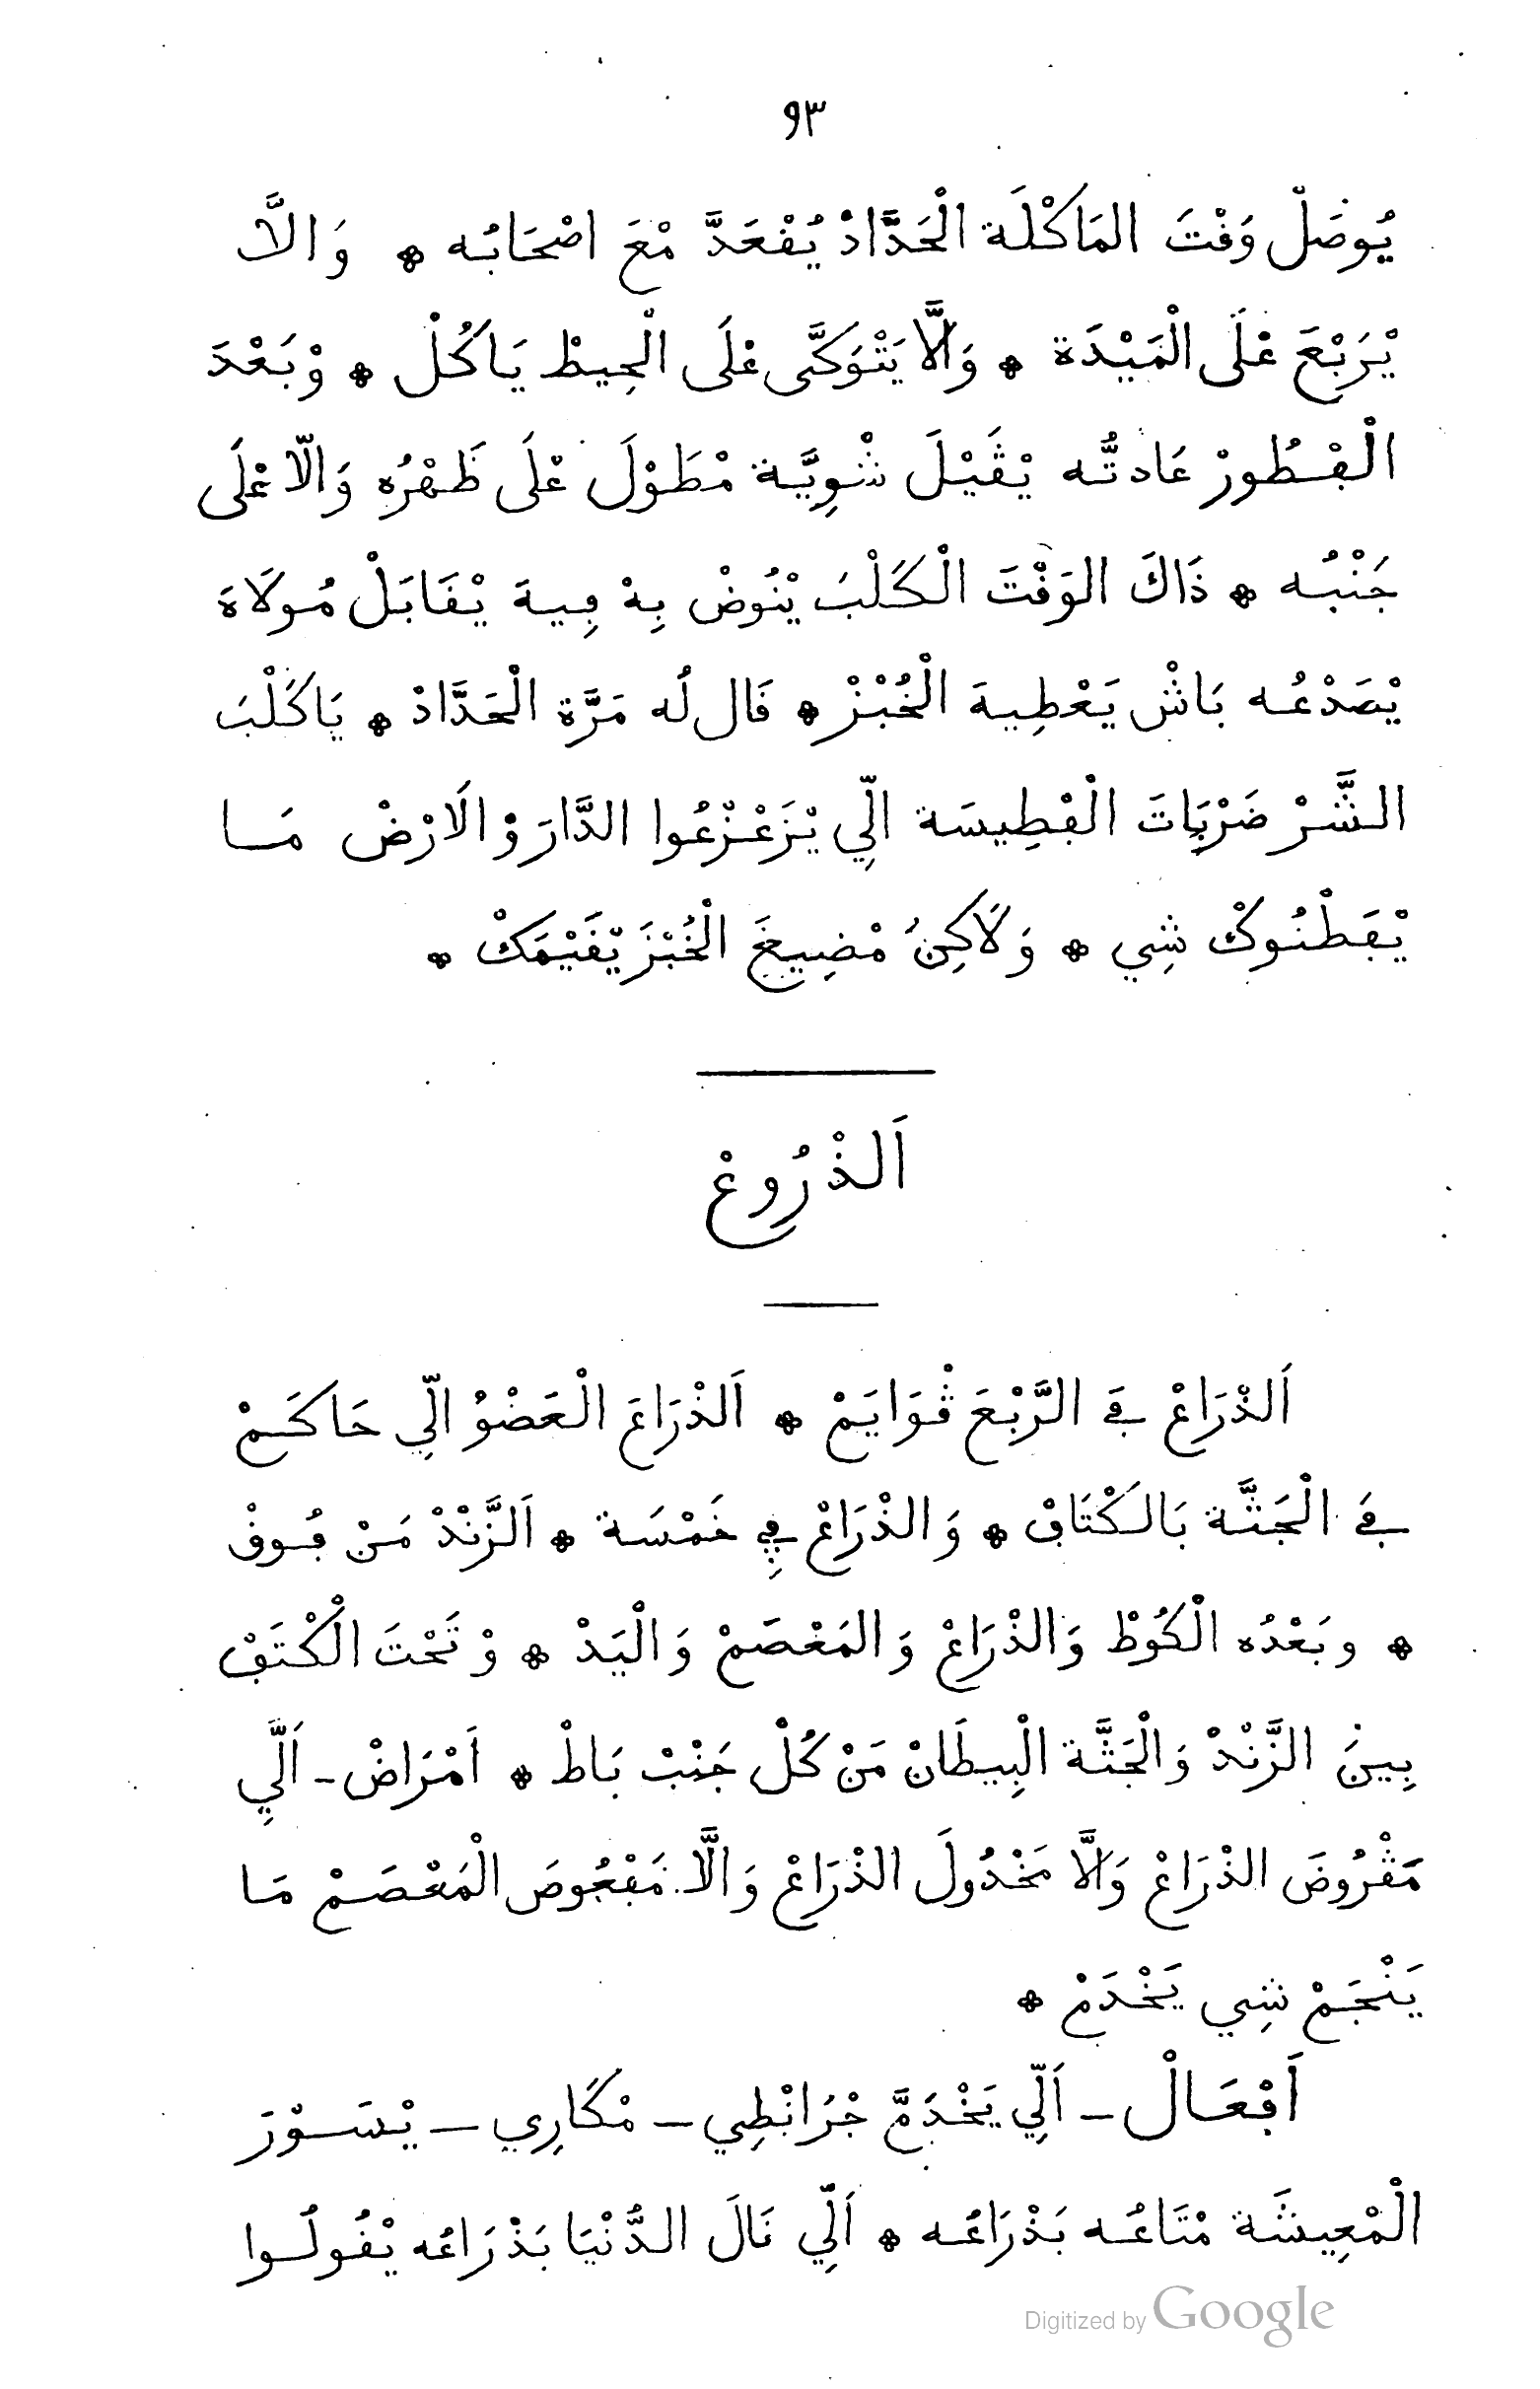 ٩٣
يُوصَلْ وَقْتَ المَاكْلَة الْحَدَّادْ يُقْعَدَّ مْعَ اصْحَابُه * وَالاَّ
يْرَبْعَ عْلَى الْمَيْدَة * وَالاَّ يَتْوَكَّى عْلَى الْحِيطْ يَاكُلْ * وْبَعْدَ
الْفْطُورْ عَادتُّه يْڨَيْلَ شْوِيَّة مْطَوْلَ عْلَى ظَهْرُه وَالاّ عْلَى
جَنْبُه * ذَاكَ الوَقْتَ الْكَلْبَ يْنُوضْ بِهْ فِيهَ يْقَابَلْ مُولَاهَ
يْصَدْعُه بَاشْ يَعْطِيهَ الْخُبْزْ * قَال لُه مَرَّة الْحَدَّادْ * يَاكَلْبَ
الشَّرْ ضَرْبَاتَ الْفْطِيسَة الِّي يْزَعْزْعُوا الدَّارَ وْالَارْضْ مَا
يْفَطْنُوكْ شِي * وَلَاكِنْ مْضِيغَ الْخُبْزَ يْقَيْمَكْ *
اَلذْرُوعْ
اَلذْرَاعْ فِي الرَّبْعَ ڨْوَايَمْ * اَلذْرَاعَ الْعَضْوْ الِّي حَاكَمْ
فِي الْجَثَّة بَالكْتَافْ * وَالذْرَاعْ فِي خَمْسَة * اَلزَّنْدْ مَنْ فُوقْ
* وبَعْدُه الْكُوطْ وَالذْرَاعْ وَالمَعْصَمْ وَالْيَدْ * وْتَحْتَ الْكْتَفْ
بِينَ الزَّنْدْ وَالْجَثَّة الْبِيطَانْ مَنْ كُلْ جَنْبْ بَاطْ * اَمْرَاضْ - اَلِّي
مَڨْرُوضَ الذْرَاعْ وَالاَّ مَخْدُولَ الذْرَاعْ وَالَّا مَفْجُوصَ الْمَعْصَمْ مَا
يَنْجَمْ شِي يَخْدَمْ *
اَفْعَالْ - اَلِّي يَخْدَمَّ جْرَانْطِي - مْكَارِي - يْسَوْرَ
الْمْعِيشَة مْتَاعُه بَذْرَاعُه * اَلِّي نَالَ الدُّنْيَا بَذْرَاعُه يْقُولُوا
Digitized by Google